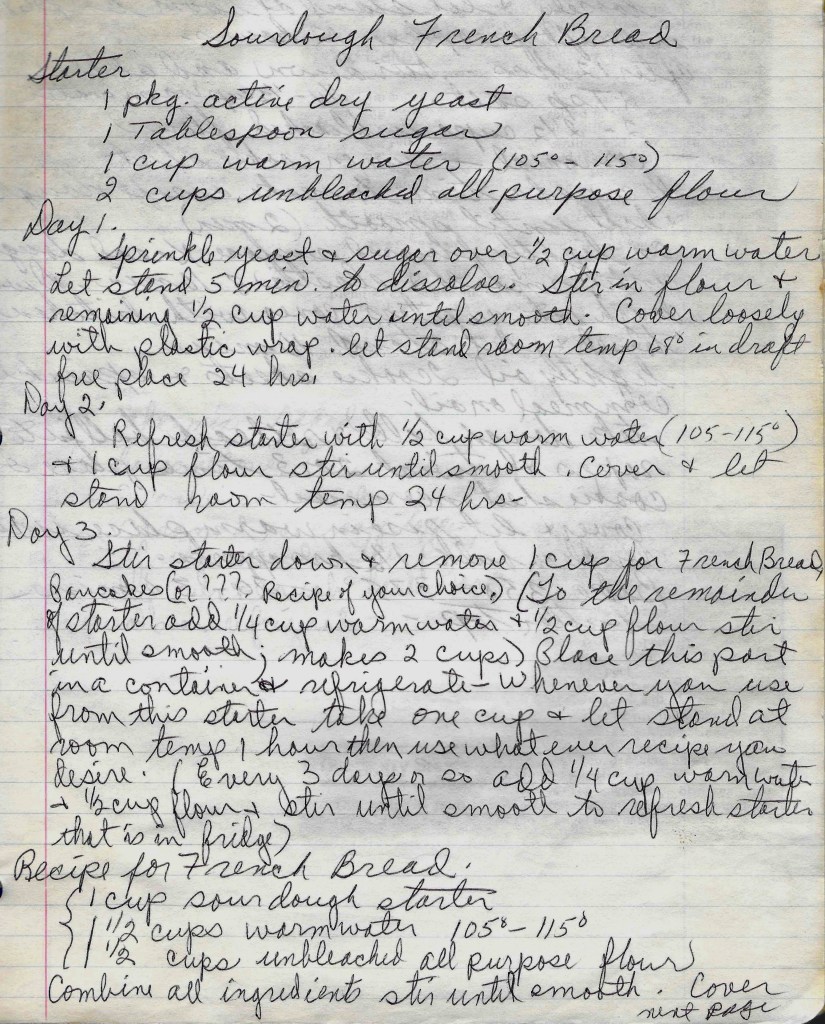 Sourdough French Bread
Starter
1 pkg. active dry yeast
1 Tablespoon sugar
1 cup warm water (105° - 115°)
2 cups unbleached all-purpose flour
Day 1.
Sprinkle yeast & sugar over 1/2 cup warm water
Let stand 5 min. to dissolve. Stir in flour &
remaining 1/2 cup water until smooth. Cover loosely
with plastic wrap. let stand room temp 68° in draft
free place 24 hrs.
Day 2.
Refresh starter with 1/2 cup warm water (105-115°)
& 1 cup flour stir until smooth. Cover & let
stand room temp 24 hrs-
Day 3.
Stir starter down & remove 1 cup for French Bread,
Pancakes (or ???. Recipe of your choice,) (To the remainder
of starter add 1/4 cup warm water & 1/2 cup flour stir
until smooth; makes 2 cups) Place this part
in a container & refrigerate - Whenever you use
from this starter take one cup & let stand at
room temp 1 hour then use what ever recipe you
desire. (Every 3 days or so add 1/4 cup warm water
& 1/2 cup flour & stir until smooth to refresh starter
that is in fridge)
Recipe for French Bread.
1 cup sourdough starter
1 1/2 cups warm water 105° - 115°
1 1/2 cups unbleached all purpose flour
Combine all ingredients stir until smooth. Cover
next page